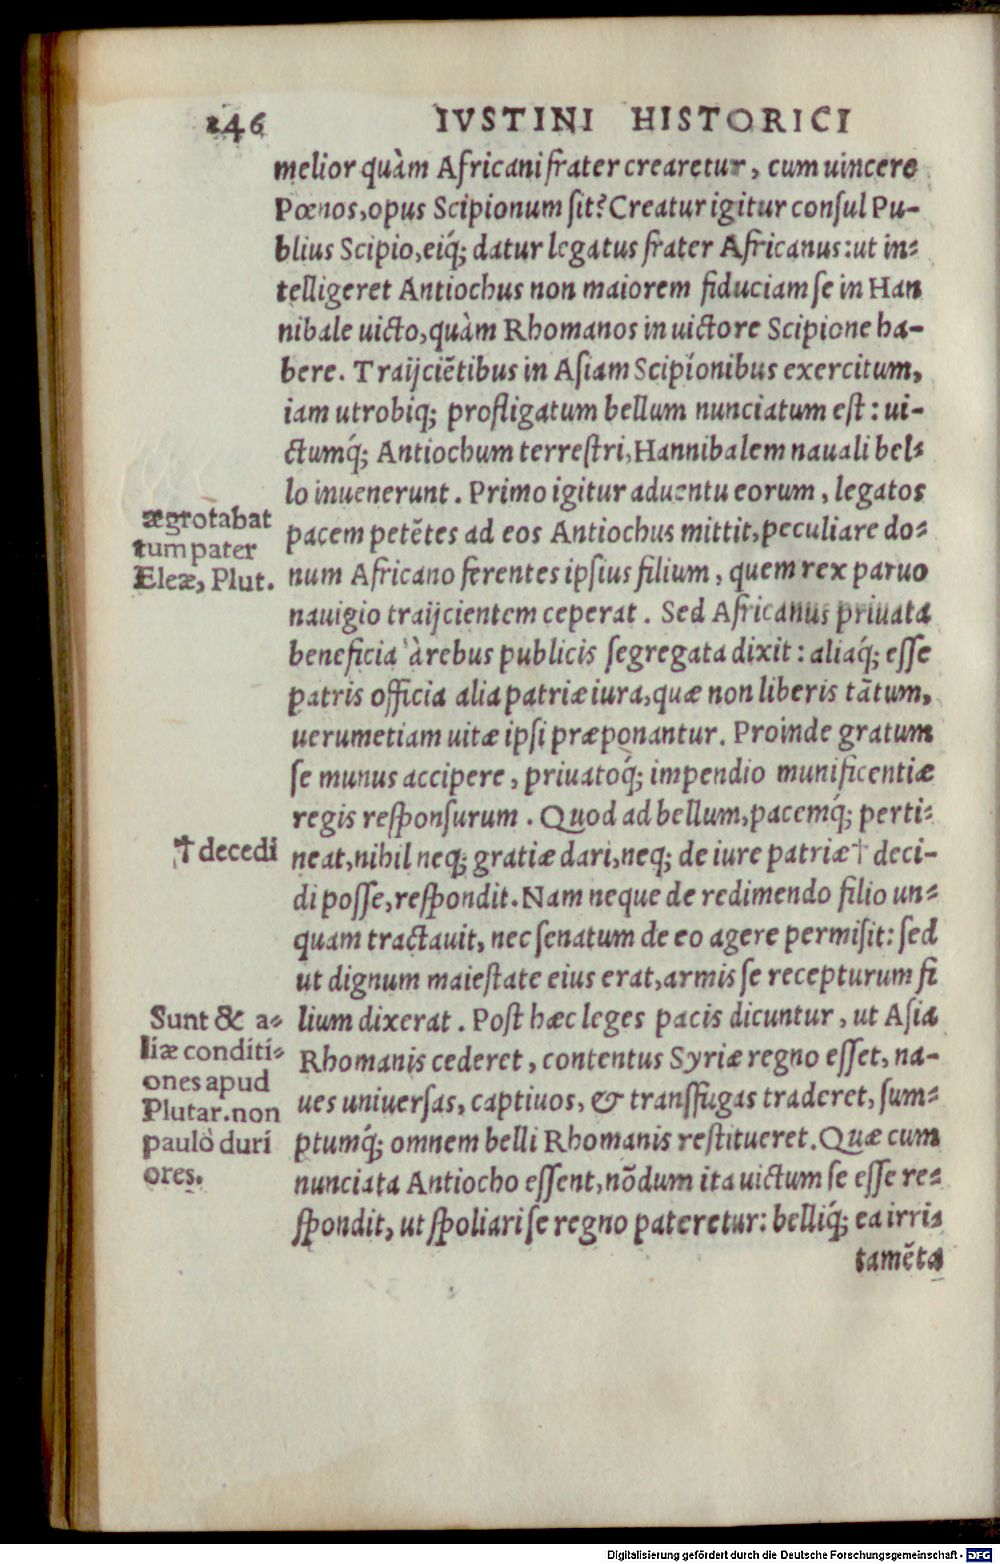 246 IVSTINI HISTORICI
melior quàm Africani frater crearetur, cum uincere
Pœnos, opus Scipionum sit? Creatur igitur consul Pu-
blius Scipio, eiq́; datur legatus frater Africanus: ut in-
telligeret Antiochus non maiorem fiduciam se in Han
nibale uicto, quàm Rhomanos in uictore Scipione ha-
bere. Traijciẽtibus in Asiam Scipionibus exercitum,
iam utrobiq; profligatum bellum nunciatum est: ui-
ctumq́; Antiochum terrestri, Hannibalem nauali bel-
lo inuenerunt. Primo igitur aduentu eorum, legatos
pacem petẽtes ad eos Antiochus mittit, peculiare do-
num Africano ferentes ipsius filium, quem rex paruo
nauigio traijcientem ceperat. Sed Africanus priuata
beneficia à rebus publicis segregata dixit: aliaq́; esse
patris officia alia patriæ iura, quæ non liberis tãtum,
uerumetiam uitæ ipsi præponantur. Proinde gratum
se munus accipere, priuatoq́; impendio munificentiæ
regis responsurum. Quod ad bellum, pacemq́; perti-
neat, nihil neq; gratiæ dari, neq; de iure patriæ † deci-
di posse, respondit. Nam neque de redimendo filio un-
quam tractauit, nec senatum de eo agere permisit: sed
ut dignum maiestate eius erat, armis se recepturum fi
lium dixerat. Post hæc leges pacis dicuntur, ut Asia
Rhomanis cederet, contentus Syriæ regno esset, na-
ues uniuersas, captiuos, & transfugas traderet, sum-
ptumq́; omnem belli Rhomanis restitueret. Quæ cum
nunciata Antiocho essent, nõdum ita uictum se esse re-
spondit, ut spoliari se regno pateretur: belliq́; ea irri-
tamẽta
ægrotabat
tum pater
Eleæ, Plut.
† decedi
Sunt & a-
liæ conditi-
ones apud
Plutar. non
paulò duri
ores.
Digitalisierung gefördert durch die Deutsche Forschungsgemeinschaft - DFG